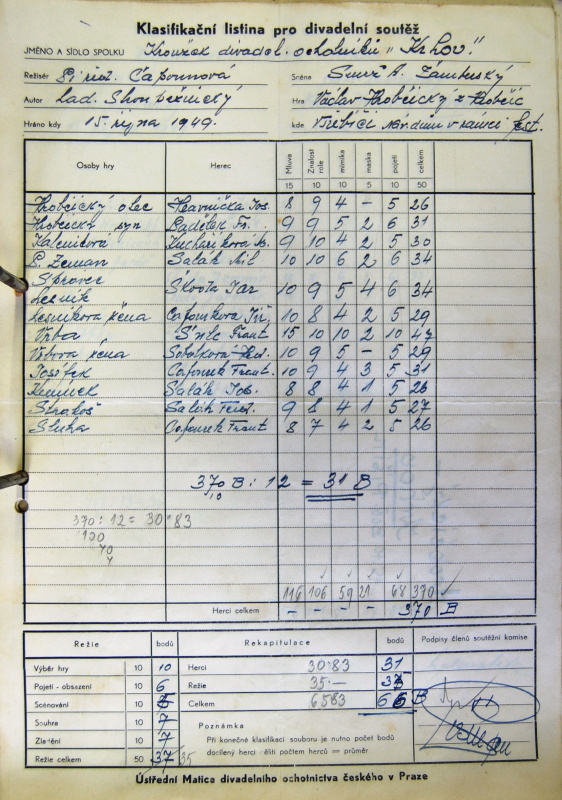 Klasifikační listina pro divadelní soutěž
JMÉNO A SÍDLO SPOLKU Kroužek divadel. ochotníků „Krhov".
Režisér Čapounová Scéna A. Zámeský
Autor Lad. Stroupežnický Hra Václav Hrobčický z Hrobčic
Hráno kdy 15. října 1949. kde v Třebíči Nár. dům v rámci fest.
Osoby hry Herec Mluva Znalost role mimika maska pojetí celkem
15 10 10 5 10 50
Hrobčický otec Hlavnička Jos. 8 9 4 – 5 26
Hrobčický syn Fr. 9 9 5 2 6 31
Kuchaříková 9 10 4 2 5 30
P. Zeman Salák Mil 10 10 6 2 6 34
Správec
Lesník Škoda Jar 10 9 5 4 6 34
Lesníkova žena 10 8 4 2 5 29
Vrba Frant 15 10 10 2 10 47
Vrbova žena Sobotková 10 9 5 – 5 29
Josífek Frant. 10 9 4 3 5 31
Salák Jos. 8 8 4 1 5 26
Salák Ferd. 9 8 4 1 5 27
Sluha Frant 8 7 4 2 5 26
370 B : 12 = 31 B
10
370 : 12 = 30·83
100
40
4
116 106 59 21 68 370
Herci celkem – – 370 B
Režie bodů Rekapitulace bodů Podpisy členů soutěžní komise
Výběr hry 10 10 Herci 30·83 31
Pojetí - obsazení 10 6 Režie 35·–
Scénování 10 Celkem 6583 B
Souhra 10 7
Zlatění 10 7
Režie celkem 50 37 35
Poznámka
Při konečné klasifikaci souboru je nutno počet bodů
docílený herci děliti počtem herců = průměr
Ústřední Matica divadelního ochotnictva českého v Praze